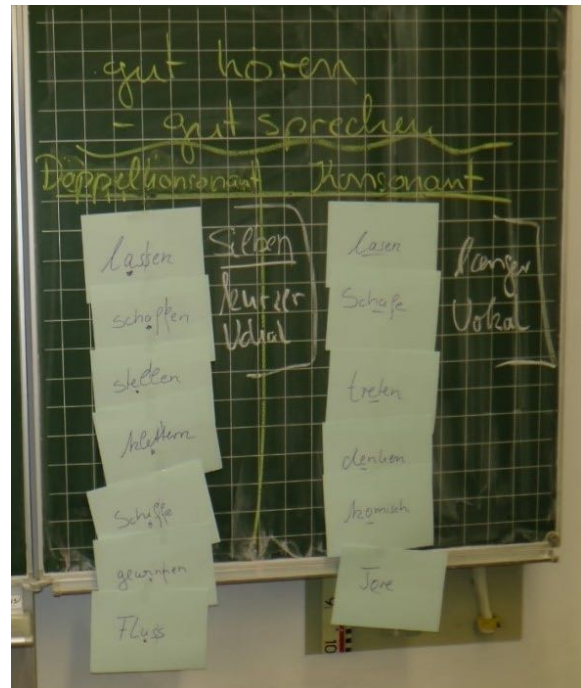 gut hören
- gut sprechen
Doppelkonsonant
Konsonant
lassen
schaffen
stellen
klettern
Schiffe
gewinnen
Fluss
Silben
kurzer
Vokal
lasen
Schafe
treten
denken
komisch
Tore
langer
Vokal